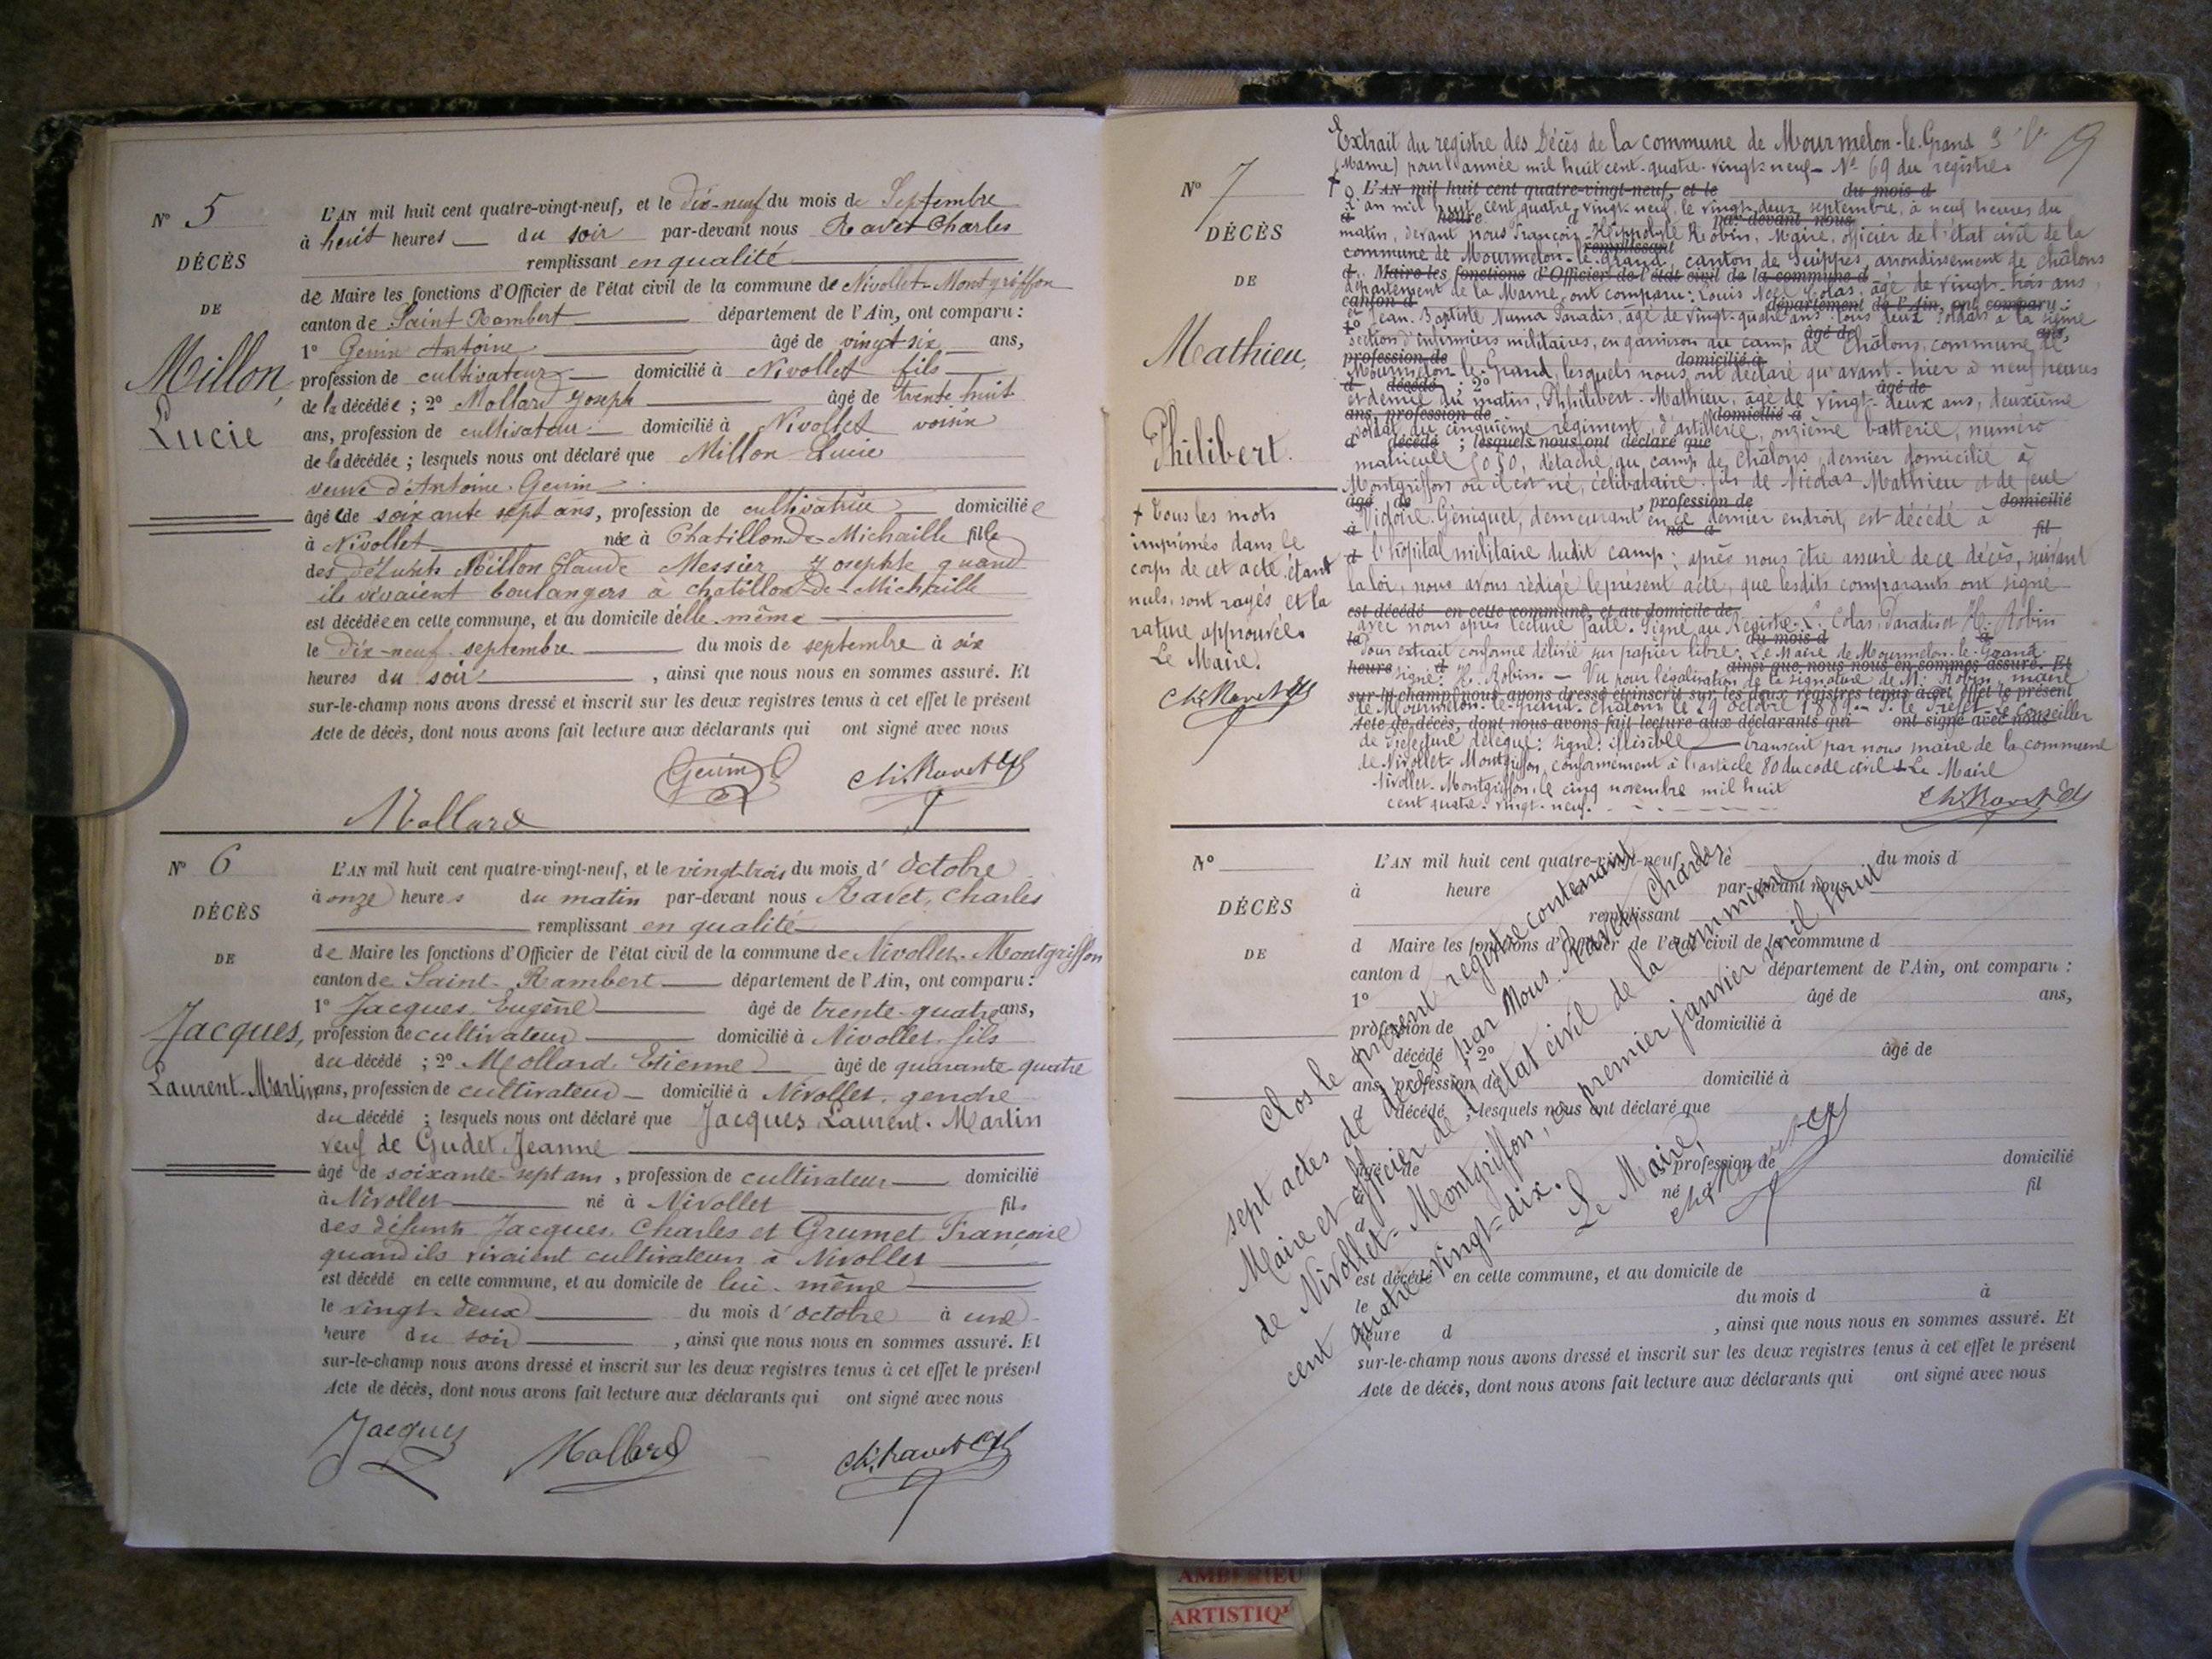 N° 5
DÉCÈS
DE
Millon,
Lucie
L'AN mil huit cent quatre-vingt-neuf, et le dix-neuf du mois de Septembre
à heuit heures du soir par-devant nous Ravet Charles
remplissant en qualité
de Maire les fonctions d'Officier de l'état civil de la commune de Nivollet-Montgriffon
canton de Saint Rambert département de l'Ain, ont comparu :
1° Genin Antoine âgé de vingt six ans,
profession de cultivateur domicilié à Nivollet fils
de la décédée ; 2° Mollard Joseph âgé de trente huit
ans, profession de cultivateur domicilié à Nivollet voisin
de la décédée ; lesquels nous ont déclaré que Millon Lucie
veuve d'Antoine Genin
âgée de soixante sept ans, profession de cultivatrice domiciliée
à Nivollet née à Chatillon-de-Michaille fille
des défunts Millon Claude Messier Josephte quand
ils vivaient boulangers à chatillon-de-Michaille
est décédée en cette commune, et au domicile d'elle même
le dix-neuf septembre du mois de septembre à six
heures du soir , ainsi que nous nous en sommes assuré. Et
sur-le-champ nous avons dressé et inscrit sur les deux registres tenus à cet effet le présent
Acte de décès, dont nous avons fait lecture aux déclarants qui ont signé avec nous
Genin
Ch. Ravet
Mollard
N° 6
DÉCÈS
DE
Jacques,
Laurent-Martin
L'AN mil huit cent quatre-vingt-neuf, et le vingt-trois du mois d' Octobre
à onze heures du matin par-devant nous Ravet, Charles
remplissant en qualité
de Maire les fonctions d'Officier de l'état civil de la commune de Nivollet-Montgriffon
canton de Saint-Rambert département de l'Ain, ont comparu :
1° Jacques Eugène âgé de trente-quatre ans,
profession de cultivateur domicilié à Nivollet, fils
du décédé ; 2° Mollard, Etienne âgé de quarante-quatre
ans, profession de cultivateur domicilié à Nivollet, gendre
du décédé ; lesquels nous ont déclaré que Jacques Laurent-Martin
veuf de Gudet, Jeanne
âgé de soixante-sept ans, profession de cultivateur domicilié
à Nivollet né à Nivollet fils
des défunts Jacques, Charles et Grumet, Françoise
quand ils vivaient cultivateurs à Nivollet
est décédé en cette commune, et au domicile de lui-même
le vingt-deux du mois d'octobre à une
heure du soir , ainsi que nous nous en sommes assuré. Et
sur-le-champ nous avons dressé et inscrit sur les deux registres tenus à cet effet le présent
Acte de décès, dont nous avons fait lecture aux déclarants qui ont signé avec nous
Jacques
Mollard
Ch. Ravet
9
Extrait du registre des Décès de la commune de Mourmelon-le-Grand
(Marne) pour l'année mil huit cent-quatre-vingt-neuf - N° 69 du registre.
N° 7
DÉCÈS
DE
Mathieu,
Philibert.
+ Tous les mots
imprimés dans le
corps de cet acte, étant
nuls, sont rayés et la
rature approuvée.
Le Maire.
Ch. Ravet
L'AN mil huit cent quatre-vingt-neuf, et le du mois d
L'an mil huit cent quatre-vingt-neuf, le vingt-deux septembre, à neuf heures du
à heure d par-devant nous
matin, devant nous François-Hippolyte Robin, Maire, officier de l'état civil de la
remplissant
commune de Mourmelon-le-Grand, canton de Suippes, arrondissement de Châlons
d Maire les fonctions d'Officier de l'état civil de la commune d
département de la Marne, ont comparu : Louis Noël Colas, âgé de vingt-trois ans,
canton d département de l'Ain, ont comparu :
et Jean-Baptiste Numa Paradis, âgé de vingt-quatre ans, tous deux soldats à la sixième
1° âgé de ans,
section d'infirmiers militaires, en garnison au camp de Châlons, commune de
profession de domicilié à
Mourmelon-le-Grand, lesquels nous ont déclaré qu'avant-hier à neuf heures
d décédé ; 2° âgé de
et demie du matin, Philibert-Mathieu, âgé de vingt-deux ans, deuxième
ans, profession de domicilié à
soldat au cinquième régiment d'artillerie, onzième batterie, numéro
d décédé ; lesquels nous ont déclaré que
matricule 5050, détaché au camp de Châlons, dernier domicilié à
Montgriffon où il est né, célibataire, fils de Nicolas Mathieu et de feue
âgé de profession de domicilié
Victoire Géniquet, demeurant en ce dernier endroit, est décédé à
à né à fil
d l'hôpital militaire dudit camp ; après nous être assuré de ce décès, suivant
la loi, nous avons rédigé le présent acte, que lesdits comparants ont signé
est décédé en cette commune, et au domicile de
avec nous après lecture faite. Signé au Registre L. Colas, Paradis et H. Robin
le du mois d à
Pour extrait conforme délivré sur papier libre. Le Maire de Mourmelon-le-Grand
heure d ainsi que nous nous en sommes assuré. Et
signé: H. Robin. - Vu pour légalisation de la signature de M. Robin, maire
sur-le-champ nous avons dressé et inscrit sur les deux registres tenus à cet effet le présent
de Mourmelon-le-Grand. Châlons le 29 octobre 1889. P. le Préfet le Conseiller
Acte de décès, dont nous avons fait lecture aux déclarants qui ont signé avec nous
de Préfecture délégué: signé: illisible transcrit par nous maire de la commune
de Nivollet-Montgriffon, conformément à l'article 80 du code civil Le Maire
Nivollet-Montgriffon, le cinq novembre mil huit
cent quatre-vingt-neuf.
Ch. Ravet
N°
DÉCÈS
DE
L'AN mil huit cent quatre-vingt-neuf, et le du mois d
à heure par-devant nous
remplissant
d Maire les fonctions d'Officier de l'état civil de la commune d
canton d département de l'Ain, ont comparu :
1° âgé de ans,
profession de domicilié à
d décédé ; 2° âgé de
ans, profession de domicilié à
d décédé ; lesquels nous ont déclaré que
âgé de profession de domicilié
à né à fil
est décédé en cette commune, et au domicile de
le du mois d à
heure d , ainsi que nous nous en sommes assuré. Et
sur-le-champ nous avons dressé et inscrit sur les deux registres tenus à cet effet le présent
Acte de décès, dont nous avons fait lecture aux déclarants qui ont signé avec nous
Clos le présent registre contenant
sept actes de décès par Nous Ravet, Charles
Maire et officier de l'état civil de la commune
de Nivollet-Montgriffon, ce premier janvier mil huit
cent quatre-vingt-dix.
Le Maire,
Ch. Ravet
AMBERIEU
ARTISTIQ